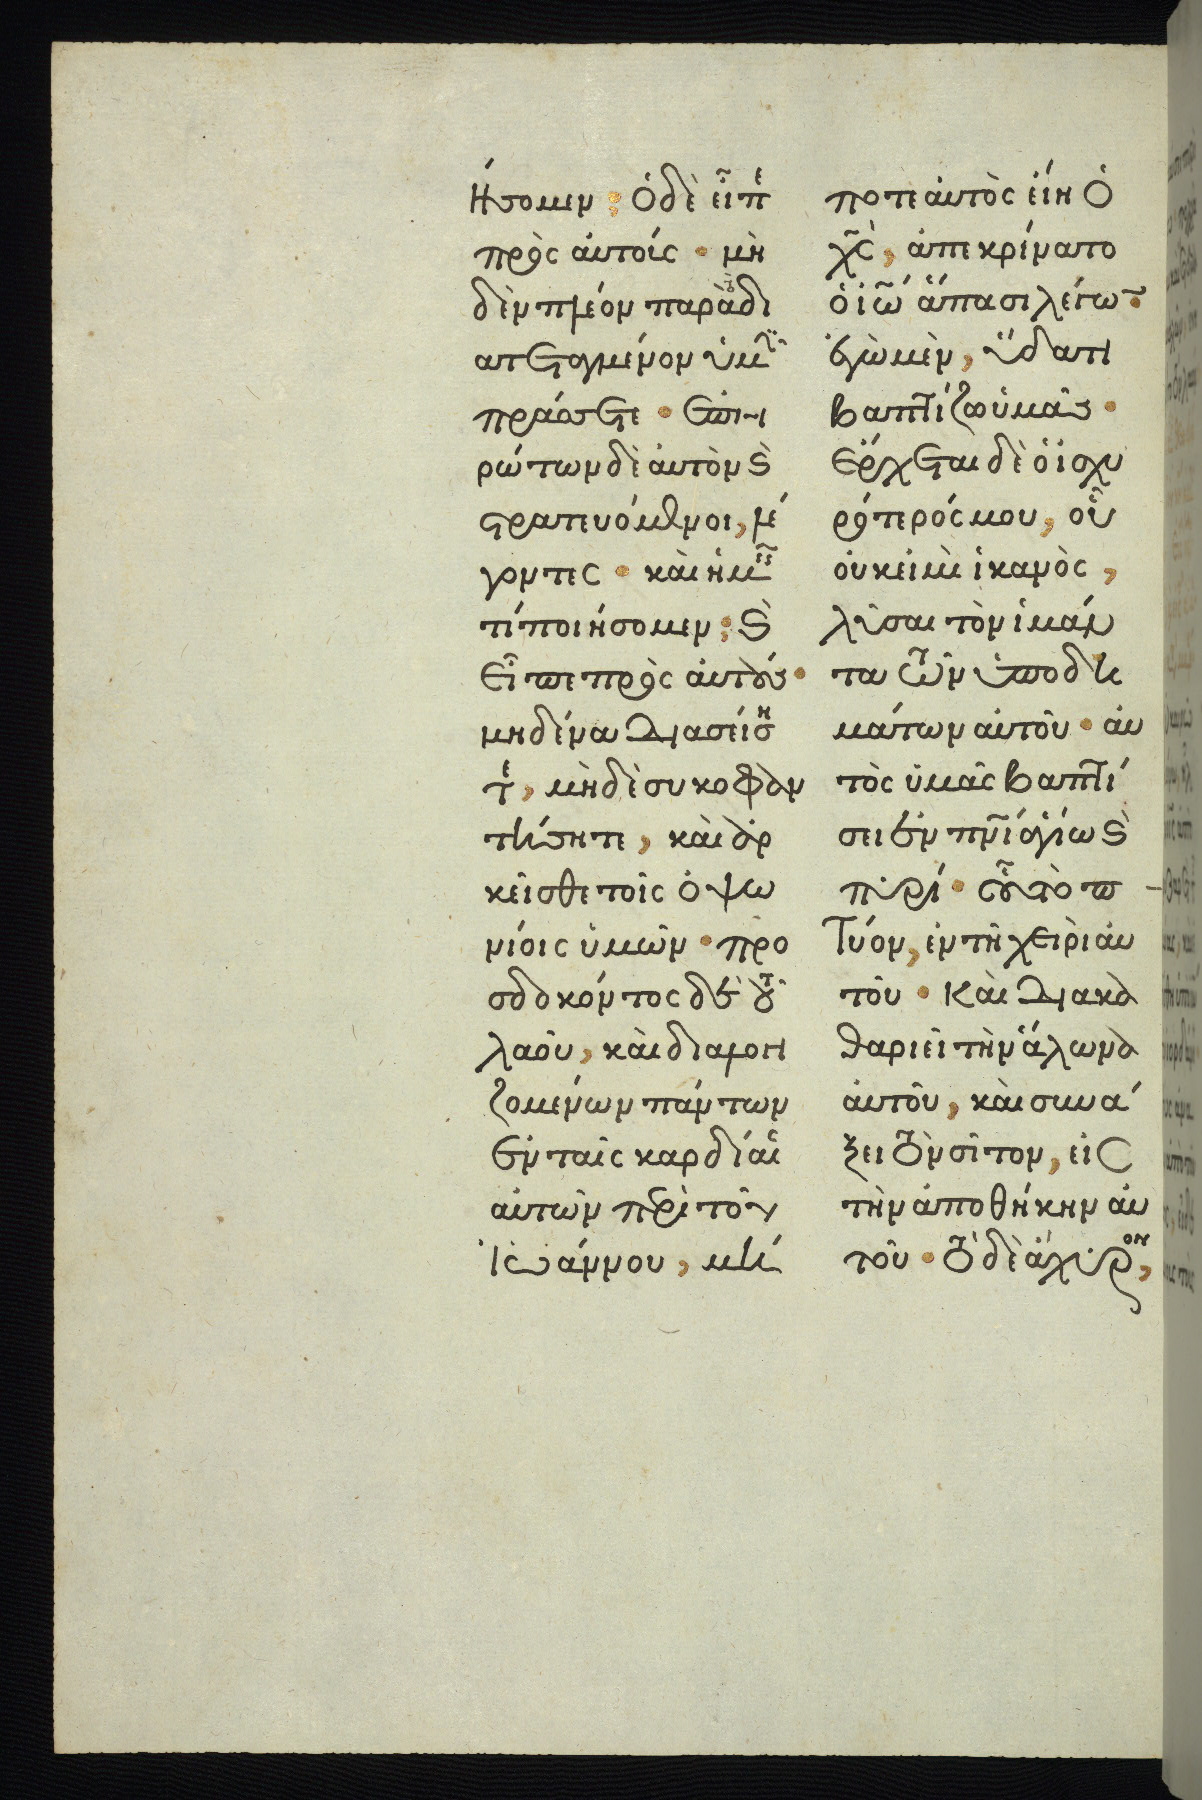 ήσομεν; ὁ δὲ εἶπε
πρὸς αὐτοίς · μὴ
δὲν πλέον παρὰ τὸ δι
ατεταγμένον ὑμῖν
πράσσετε · Ἐπη
ρώτων δὲ αὐτὸν καὶ
στρατευόμενοι, λέ
γοντες · καὶ ἡμεῖς
τί ποιήσομεν; καὶ
εἶπε πρὸς αὐτούς ·
μηδένα διασείση
τε, μὴ δὲ συκοφαν
τήσητε, καὶ ἀρ
κεῖσθε τοῖς ὀψω
νίοις ὑμῶν · προ
σδοκόντος δὲ τοῦ
λαοῦ, καὶ διαλογι
ζομένων πάντων
ἐν ταῖς καρδίαις
αὐτῶν περὶ τοῦ
Ἰωάννου, μή
ποτε αὐτὸς εἴη ὁ
χς, ἀπεκρίνατο
ὁ ἰω ἅπασι λέγων ·
ἐγὼ μὲν, ὕδατι
βαπτίζω ὑμᾶς ·
Ἔρχεται δὲ ὁ ἰσχυ
ρότερός μου, οὗ
οὐκ εἰμὶ ἱκανὸς,
λῦσαι τὸν ἱμάν
τα τῶν ὑποδη
μάτων αὐτοῦ · αὐ
τὸς ὑμᾶς βαπτί
σει ἐν πνι ἁγίω καὶ
πυρί · οὗ τὸ π
τύον, ἐν τῆ χειρὶ αὐ
τοῦ · Καὶ διακα
θαριεῖ τὴν ἅλωνα
αὐτοῦ, καὶ συνά
ξει τὸν σῖτον, εἰς
τὴν ἀποθήκην αὐ
τοῦ · τὸ δὲ ἄχυρον,